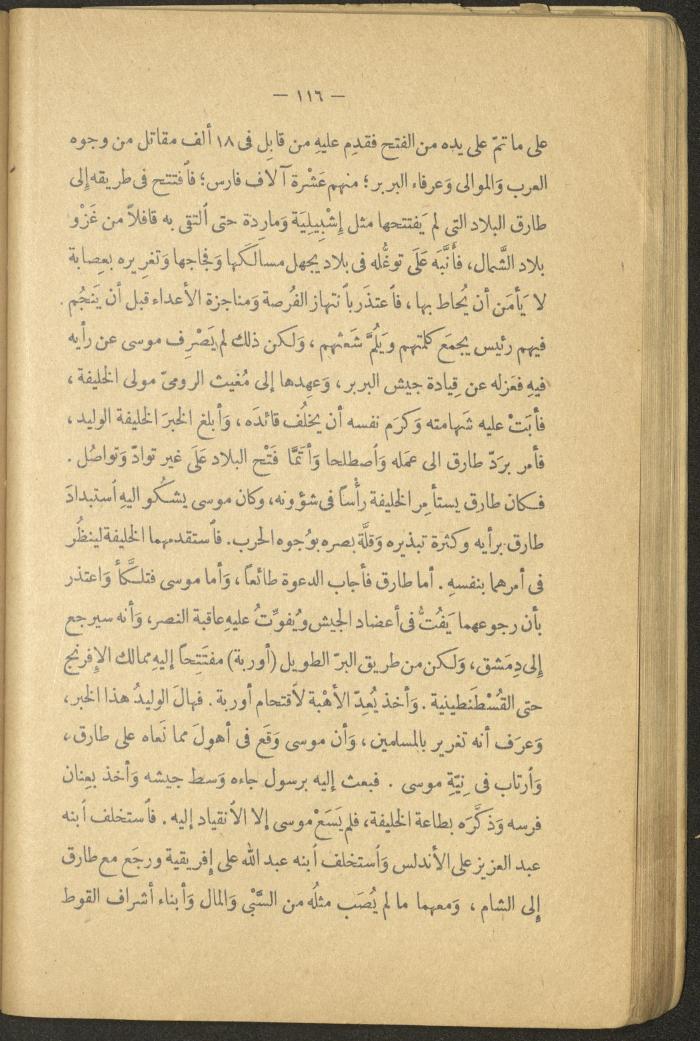 — ١١٦ —
على ما تمّ على يده من الفتح فقدِم عليهِ من قابِل فى ١٨ ألف مقاتل من وجوه
العرب وَالموالى وَعرفاء البربر ؛ منهم عَشْرة آلاف فارس ؛ فاُفتتح فى طريقه إلى
طارق البلاد التى لم يَفتتحها مثل إشْبِيلِيَة وَمارِدة حتى اُلتقى به قافلاً من غَزْو
بلاد الشَّمال، فأَنَّبَه عَلَى توغُّله فى بلاد يجهل مسالكَها وَفجاجها وَتغرِيره بعِصابة
لا يَأمَن أن يُحاط بها ، فاُعتذَر باُنتهاز الفُرصة وَمناجزة الأعداء قبل أن يَنجُم .
فيهم رئيس يجمَع كلمتهم وَيَلُمَّ شَعَثهم ، وَلكن ذلك لم يَصْرِف موسى عن رأيه
فيهِ فعَزله عن قِيادة جيش البربر ، وَعهِدها إلى مُغيث الرومىّ مولى الخليفة ،
فأبَتْ عليه شَهامته وَكرَم نفسه أن يخلُف قائدَه ، وَأبلغ الخبرَ الخليفة الوليد ،
فأمر برَدّ طارق الى عمَله وَاُصطلحا وَأتَمَّا فَتْح البلاد عَلَى غير توادّ وَتواصُل .
فكان طارق يستأمِر الخليفة رأْساً فى شؤونه، وكان موسى يشكو اليهِ اُستبدادَ
طارق برأيه وكثرة تبذيره وَقلَّة بصره بوُجوه الحرب. فاُستقدمهما الخليفة لينظُر
فى أمرهما بنفسهِ . أما طارق فأجاب الدعوة طائعاً ، وَأما موسى فتلكَّأ وَاعتذر
بأن رجوعهما يَفُتُّ فى أعضاد الجيش ويُفوِّتُ عليهِ عاقبة النصر، وَأنه سيرجع
إلى دِمَشق، وَلكن من طريق البرّ الطويل (أوربة) مفتَتِحاً إليهِ ممالك الإفرنج
حتى القُسْطَنطينية . وَأخذ يُعِدّ الأهْبة لاُقتحام أوربة . فهالَ الوليدُ هذا الخبر،
وَعرَف أنه تغرير بالمسلمين ، وَأن موسى وَقع فى أهولَ مما نَعاه على طارق ،
وَاُرتاب فى نِيَّةِ موسى . فبعث إليه برسول جاءه وَسط جيشه وَأخذ بعِنان
فرسه وَذَكَّرَه بطاعة الخليفة، فلم يَسَعْ موسى إلا الاُنقياد إليه . فاُستخلف اُبنه
عبد العزيز على الأندلس وَاُستخلف اُبنه عبد الله على إفريقية ورجَع مع طارق
إلى الشام ، وَمعهما ما لم يُصَب مثلُه من السَّبْى وَالمال وَأبناء أشراف القوط